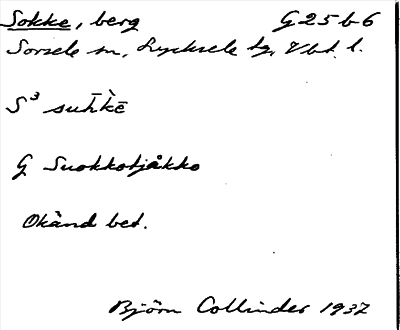 Sokke, berg G 25 b 6
Sorsele sn, Lycksele tg, Vbt. l.
S³ suh̄k̀ē
G Suokkotjåkko
Okänd bet.
Björn Collinder 1937